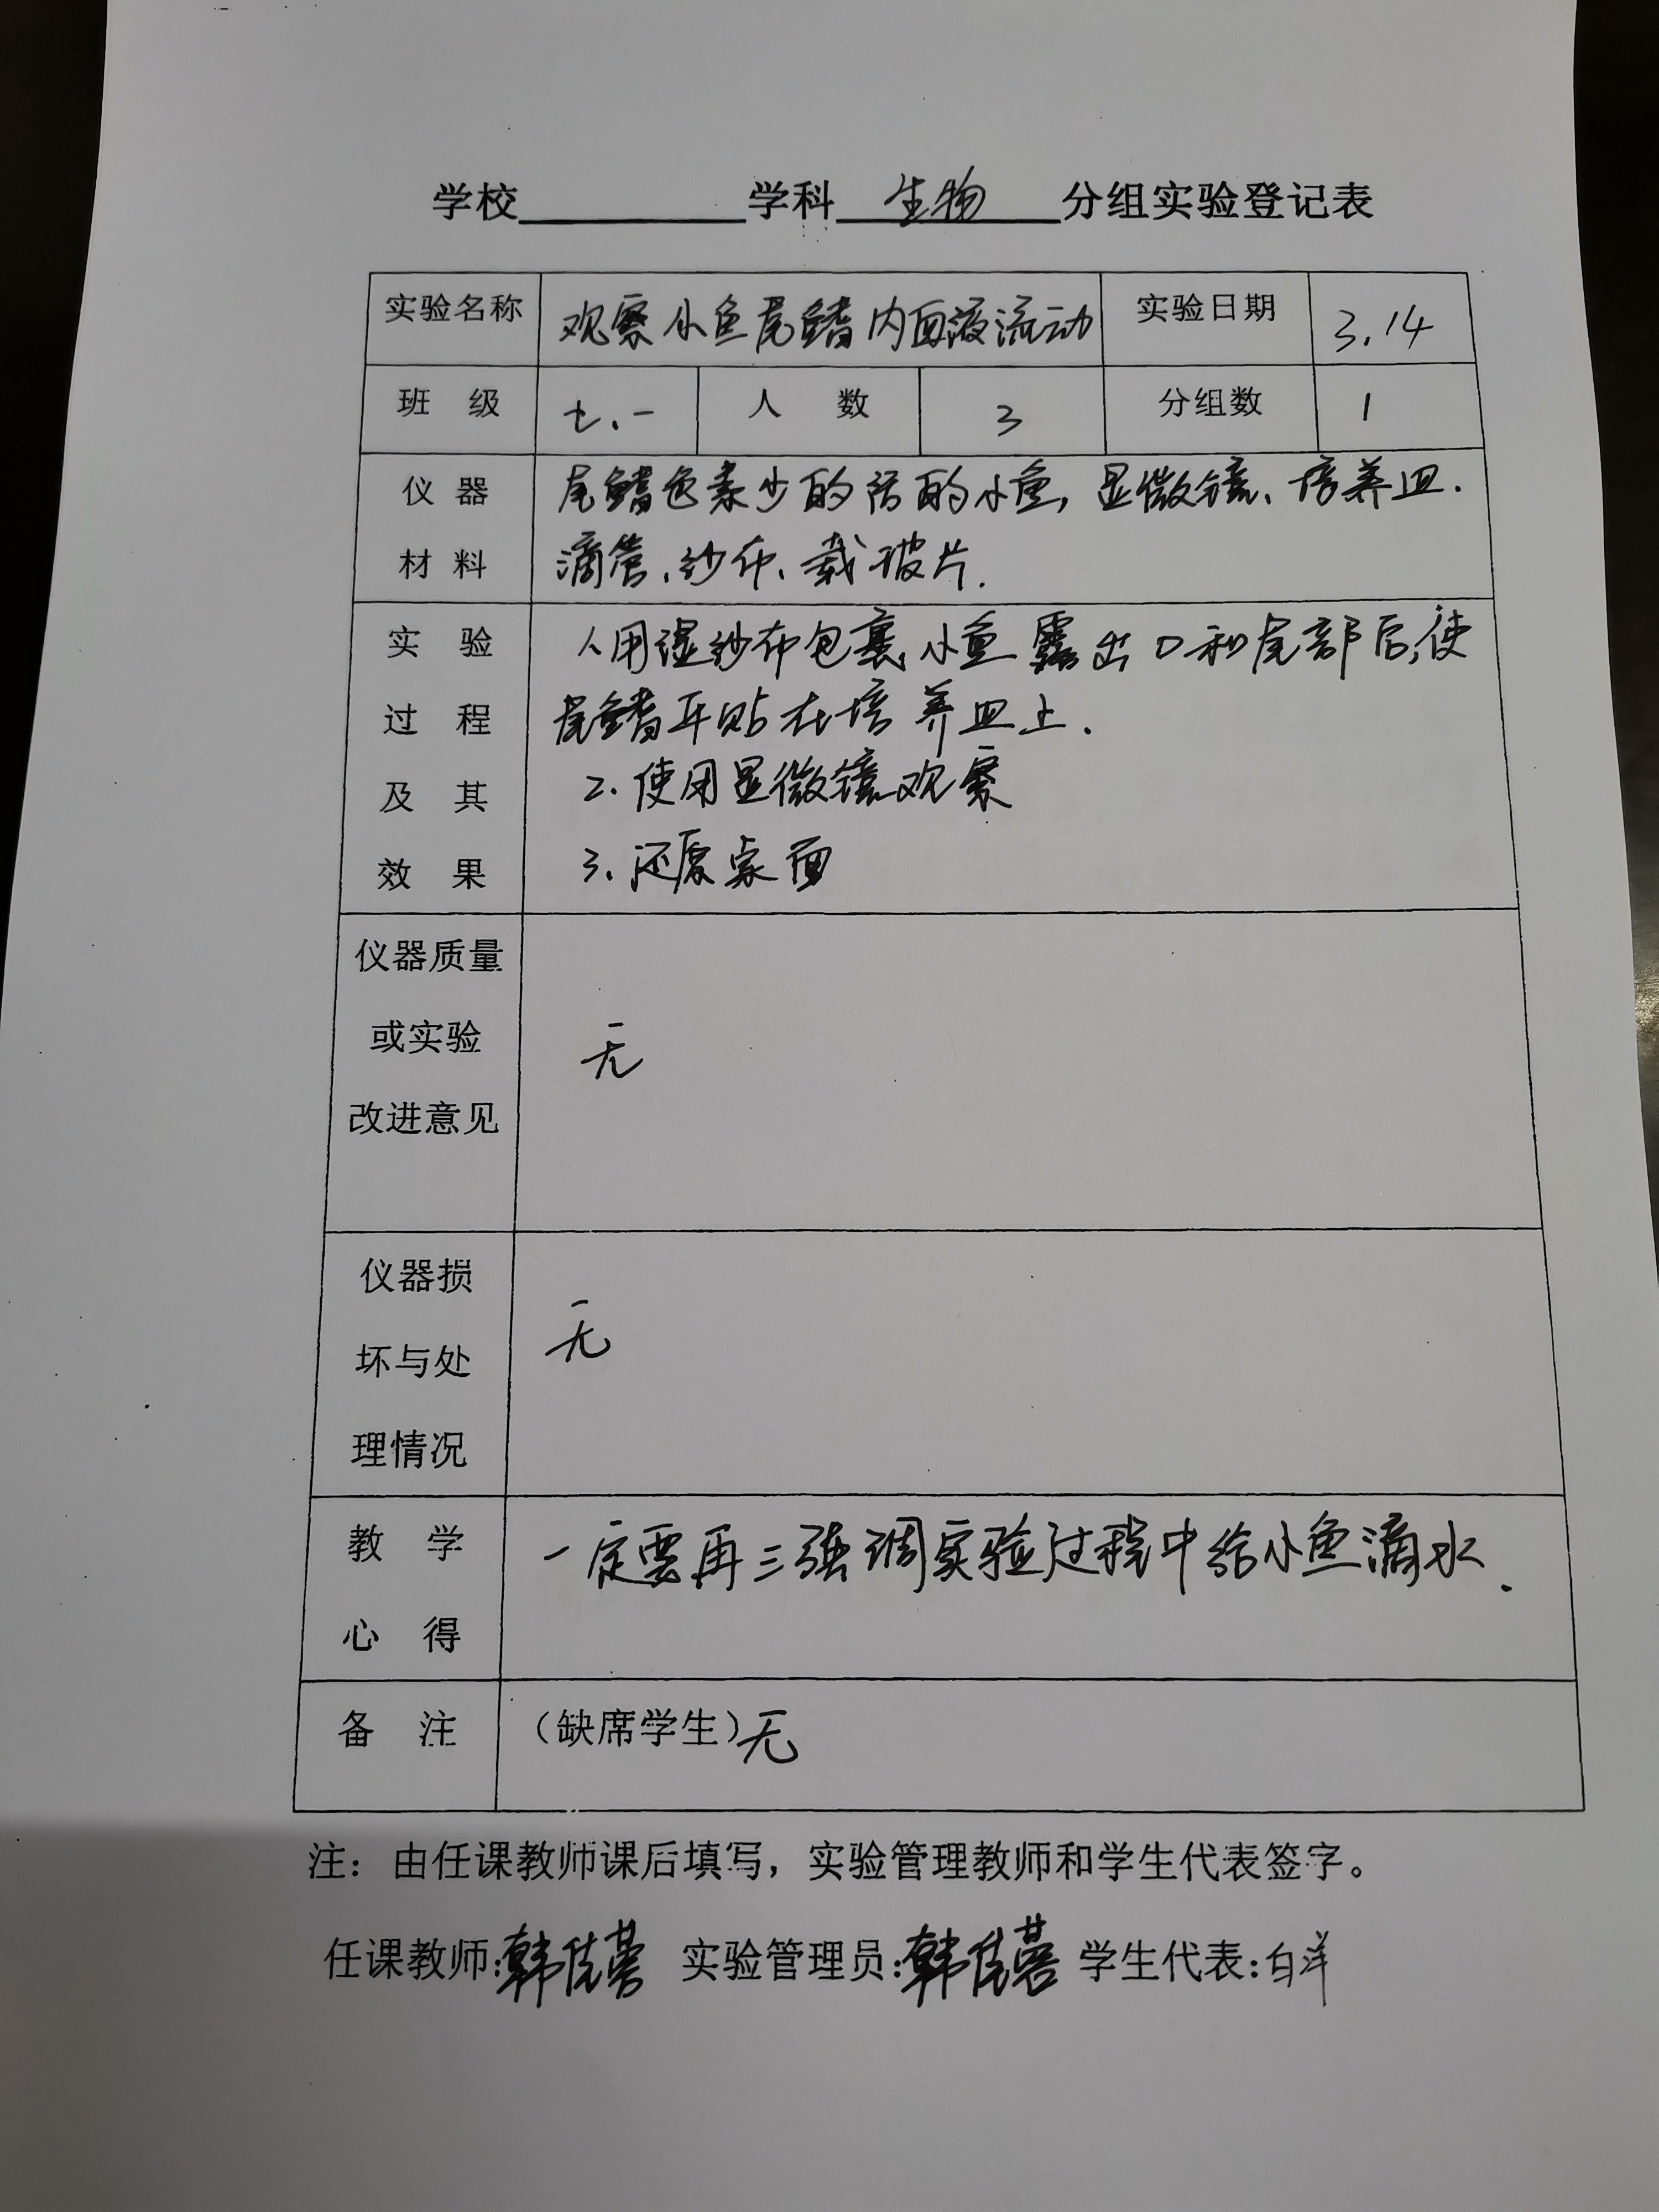 学校 学科 生物 分组实验登记表
实验名称 观察小鱼尾鳍内血液流动 实验日期 3.14
班 级 七.一 人 数 3 分组数 1
仪 器 尾鳍色素少的活的小鱼,显微镜、培养皿.
材 料 滴管、纱布、载玻片.
实 验 1.用湿纱布包裹小鱼露出口和尾部后,使
过 程 尾鳍平贴在培养皿上.
及 其 2.使用显微镜观察
效 果 3.还原桌面
仪器质量
或实验 无
改进意见
仪器损
坏与处 无
理情况
教 学 一定要再三强调实验过程中给小鱼滴水.
心 得
备 注 (缺席学生)无
注:由任课教师课后填写,实验管理教师和学生代表签字。
任课教师:韩佳蓉 实验管理员:韩佳蓉 学生代表:白洋